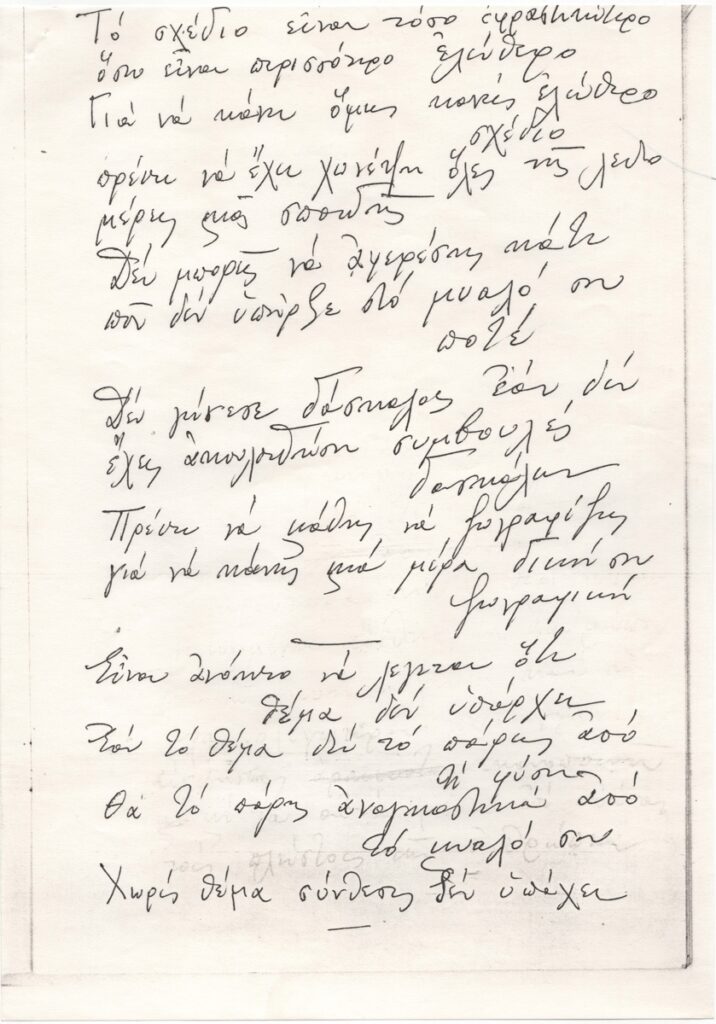 Τό σχέδιο εἶναι τόσο ἐκφραστικώτερο
ὅσο εἶναι περισσότερο ἐλεύθερο
Γιά νά κάνη ὅμως κανείς ἐλεύθερο
σχέδιο
πρέπει νά ἔχη χωνέψη ὅλες τίς λεπτο
μέρειες μιᾶς σπουδῆς
Δέν μπορεῖς νά ἀφερέσης κάτι
πού δέν ὑπῆρξε στό μυαλό σου
ποτέ
Δέν γίνεσε δάσκαλος ἐάν δέν
ἔχεις ἀκολουθήση συμβουλές
δασκάλων
Πρέπει νά κάθης νά ζωγραφίζης
γιά νά κάνης μιά μέρα δική σου
ζωγραφική
Εἶναι ἀνόητο νά λεγεται ὅτι
θέμα δέν ὑπάρχει
Ἐάν τό θέμα δέν τό πάρεις ἀπό
τή φύση
θά τό πάρης ἀναγκαστικά ἀπό
τό μυαλό σου
Χωρίς θέμα σύνθεσις δέν ὑπάχει